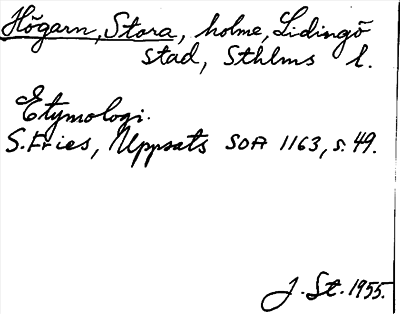 Högarn, Stora, holme, Lidingö
stad, Sthlms l.
Etymologi.
S. Fries, Uppsats SOA 1163, s. 49.
J. St. 1955.